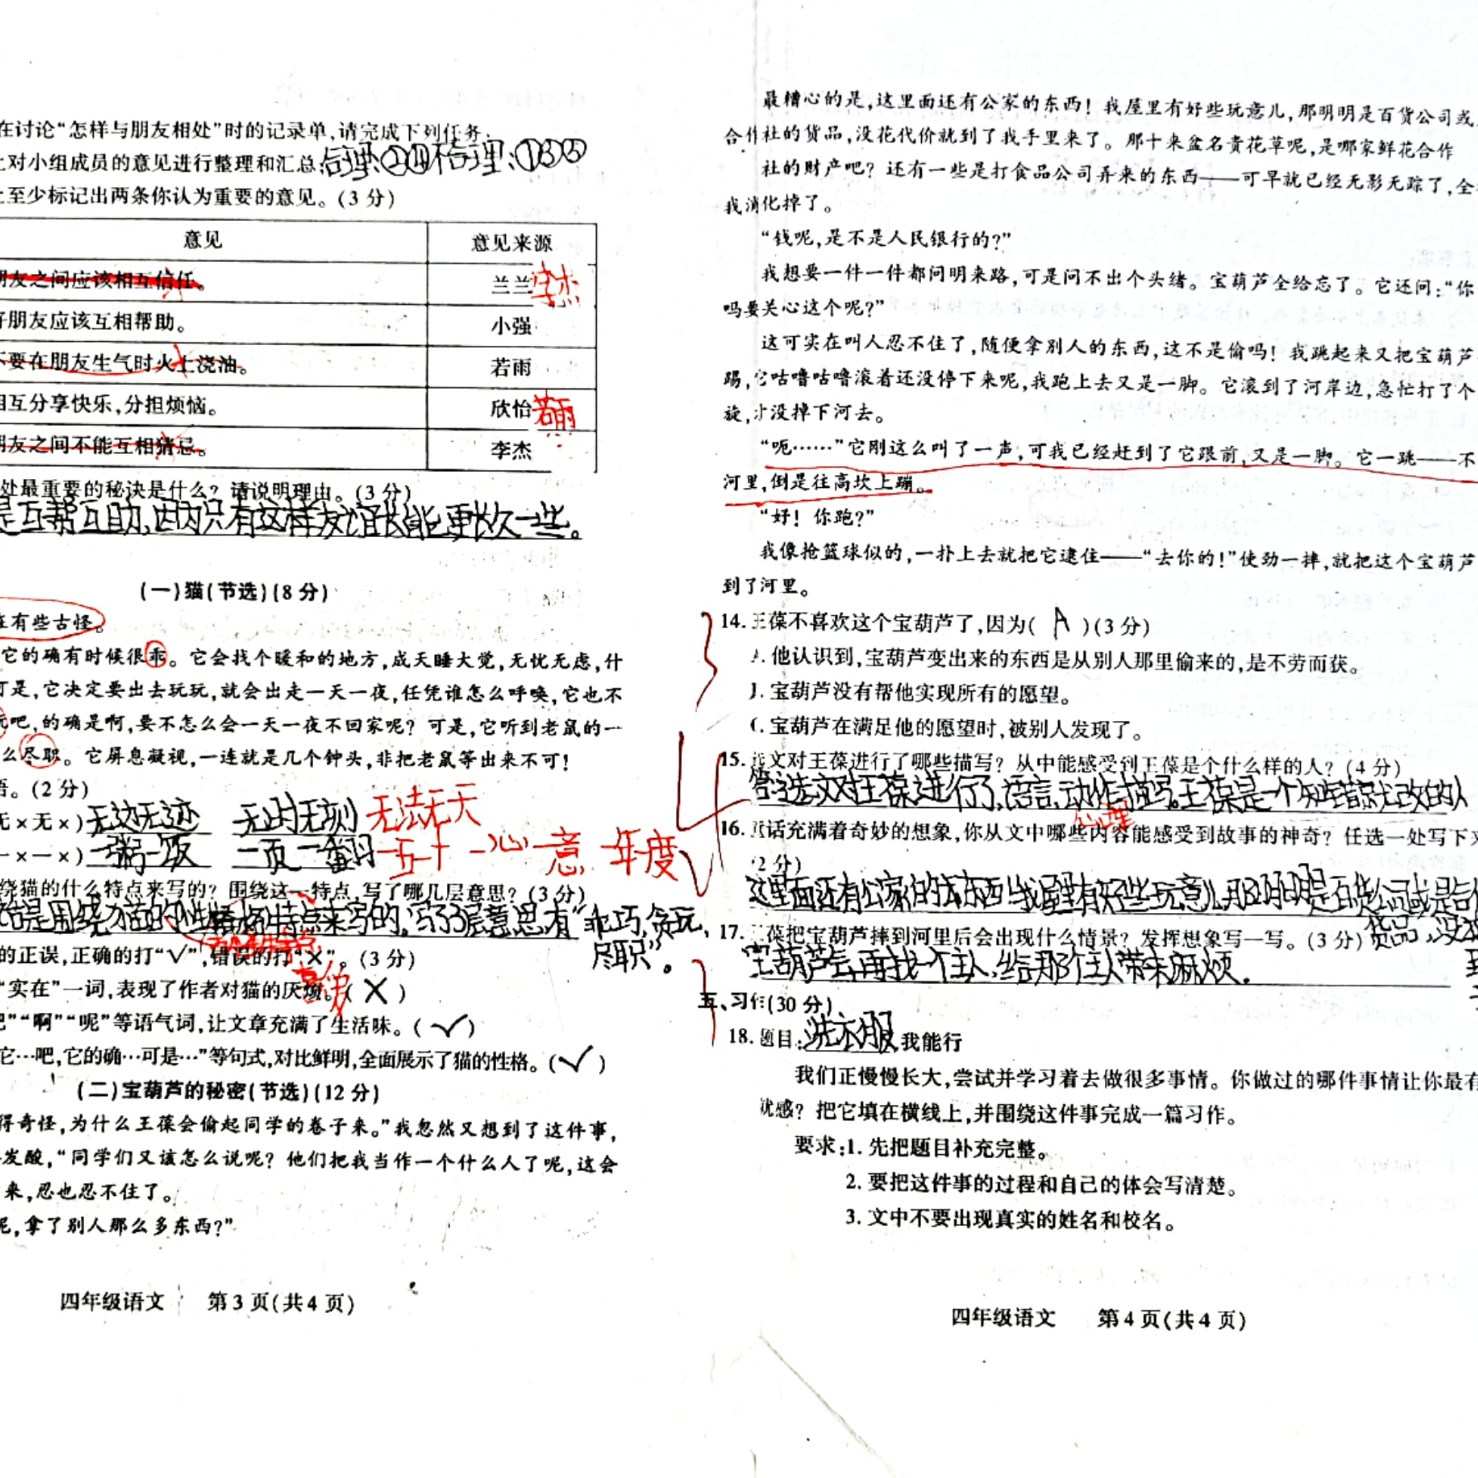 在讨论“怎样与朋友相处”时的记录单,请完成下列任务:
上对小组成员的意见进行整理和汇总:合理:②④不合理:①③⑤
上至少标记出两条你认为重要的意见。(3 分)
意见 意见来源
朋友之间应该相互信任。 兰兰 李杰
好朋友应该互相帮助。 小强
不要在朋友生气时火上浇油。 若雨
相互分享快乐,分担烦恼。 欣怡 若雨
朋友之间不能互相猜忌。 李杰
处最重要的秘诀是什么? 请说明理由。(3 分)
是互帮互助,因为只有这样友谊才能更长久一些。
(一)猫(节选)(8 分)
在有些古怪。
它的确有时候很乖。它会找个暖和的地方,成天睡大觉,无忧无虑,什
可是,它决定要出去玩玩,就会出走一天一夜,任凭谁怎么呼唤,它也不
玩吧,的确是啊,要不怎么会一天一夜不回家呢? 可是,它听到老鼠的一
么尽职。它屏息凝视,一连就是几个钟头,非把老鼠等出来不可!
语。(2 分)
无×无×)无边无迹 无时无刻 无法无天
一×一×)一粥一饭 一页一番 一五一十 一心一意 一年一度
绕猫的什么特点来写的? 围绕这一特点,写了哪几层意思? (3 分)
是围绕猫的性格古怪特点来写的,写了3层意思,有“乖巧,贪玩,
尽职”。
的正误,正确的打“√”,错误的打“×”。(3 分)
“实在”一词,表现了作者对猫的厌烦。( × )
喜爱
吧”“啊”“呢”等语气词,让文章充满了生活味。( √ )
它…吧,它的确…可是…”等句式,对比鲜明,全面展示了猫的性格。( √ )
(二)宝葫芦的秘密(节选)(12 分)
得奇怪,为什么王葆会偷起同学的卷子来。”我忽然又想到了这件事,
发酸,“同学们又该怎么说呢? 他们把我当作一个什么人了呢,这会
来,忍也忍不住了。
呢,拿了别人那么多东西?”
四年级语文 第 3 页(共 4 页)
最糟心的是,这里面还有公家的东西! 我屋里有好些玩意儿,那明明是百货公司或
合作社的货品,没花代价就到了我手里来了。那十来盆名贵花草呢,是哪家鲜花合作
社的财产吧? 还有一些是打食品公司弄来的东西——可早就已经无影无踪了,全
我消化掉了。
“钱呢,是不是人民银行的?”
我想要一件一件都问明来路,可是问不出个头绪。宝葫芦全给忘了。它还问:“你
吗要关心这个呢?”
这可实在叫人忍不住了,随便拿别人的东西,这不是偷吗! 我跳起来又把宝葫芦
踢,它咕噜咕噜滚着还没停下来呢,我跑上去又是一脚。它滚到了河岸边,急忙打了个
旋,才没掉下河去。
“呃……”它刚这么叫了一声,可我已经赶到了它跟前,又是一脚。它一跳——不
河里,倒是往高坎上蹦。
“好! 你跑?”
我像抢篮球似的,一扑上去就把它逮住——“去你的!”使劲一摔,就把这个宝葫芦
到了河里。
14. 王葆不喜欢这个宝葫芦了,因为( A )(3 分)
A. 他认识到,宝葫芦变出来的东西是从别人那里偷来的,是不劳而获。
B. 宝葫芦没有帮他实现所有的愿望。
C. 宝葫芦在满足他的愿望时,被别人发现了。
15. 选文对王葆进行了哪些描写? 从中能感受到王葆是个什么样的人? (4 分)
答:选文对王葆进行了,语言,动作描写。王葆是一个知错就改的人
心理
16. 童话充满着奇妙的想象,你从文中哪些内容能感受到故事的神奇? 任选一处写下
(2 分)
这里面还有公家的东西!我屋里有好些玩意儿,那明明是百货公司或是合作
货品,没花
17. 王葆把宝葫芦摔到河里后会出现什么情景? 发挥想象写一写。(3 分)
宝葫芦会再找一个主人,给那个主人带来麻烦。
五、习作(30 分)
18. 题目:洗衣服我能行
我们正慢慢长大,尝试并学习着去做很多事情。你做过的哪件事情让你最有
就感? 把它填在横线上,并围绕这件事完成一篇习作。
要求:1. 先把题目补充完整。
2. 要把这件事的过程和自己的体会写清楚。
3. 文中不要出现真实的姓名和校名。
四年级语文 第 4 页(共 4 页)